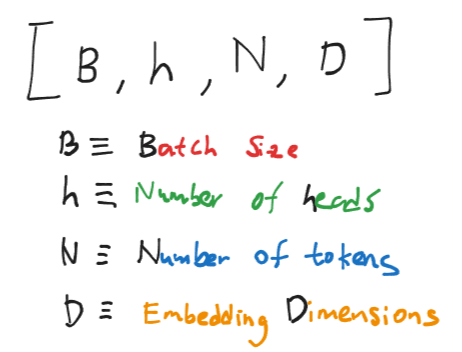 [B, h, N, D]
B ≡ Batch Size
h ≡ Number of heads
N ≡ Number of tokens
D ≡ Embedding Dimensions